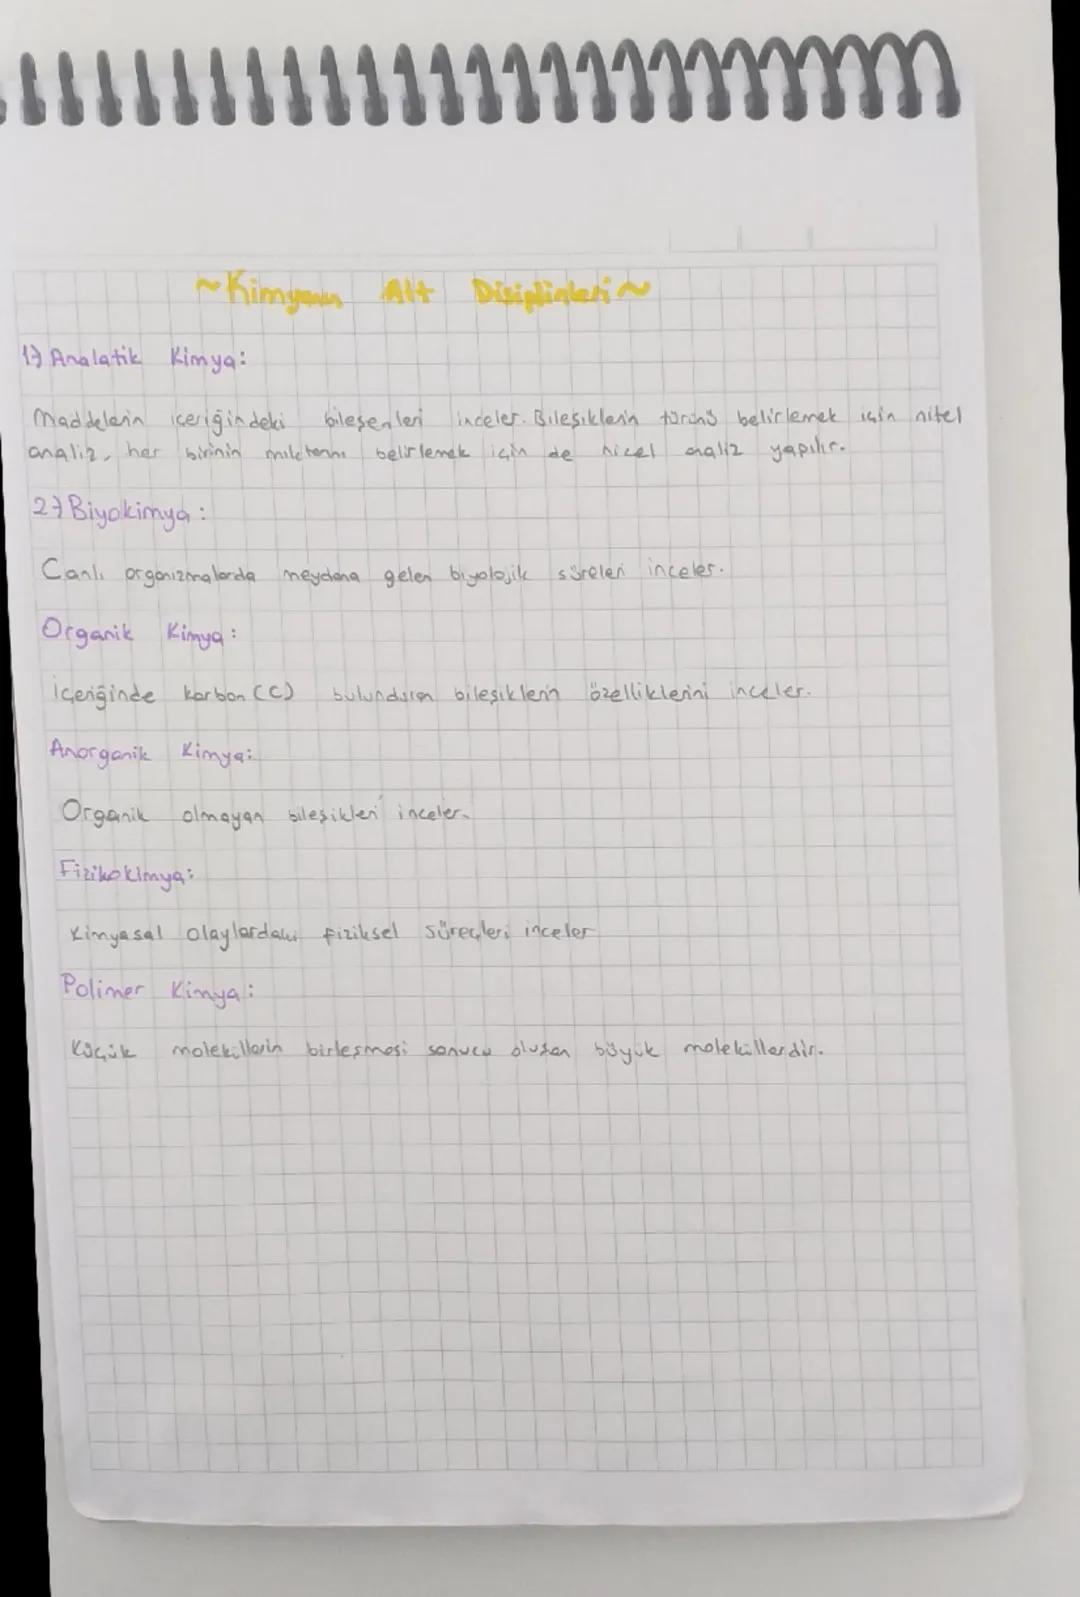 ~Kimyanın Alt Disiplinleri~
1) Analatik Kimya:
Maddelerin içeriğindeki bileşenleri inceler. Bileşiklerin türünü belirlemek için nitel
analiz, her birinin miktarını belirlemek için de nicel analiz yapılır.
2) Biyokimya:
Canlı organizmalarda meydana gelen biyolojik süreleri inceler.
Organik Kimya:
İçeriğinde karbon (C) bulunduran bileşiklerin özelliklerini inceler.
Anorganik Kimya:
Organik olmayan bileşikleri inceler.
Fizikokimya:
Kimyasal olaylardaki fiziksel süreçleri inceler
Polimer Kimya:
Küçük moleküllerin birleşmesi sonucu oluşan büyük moleküllerdir.